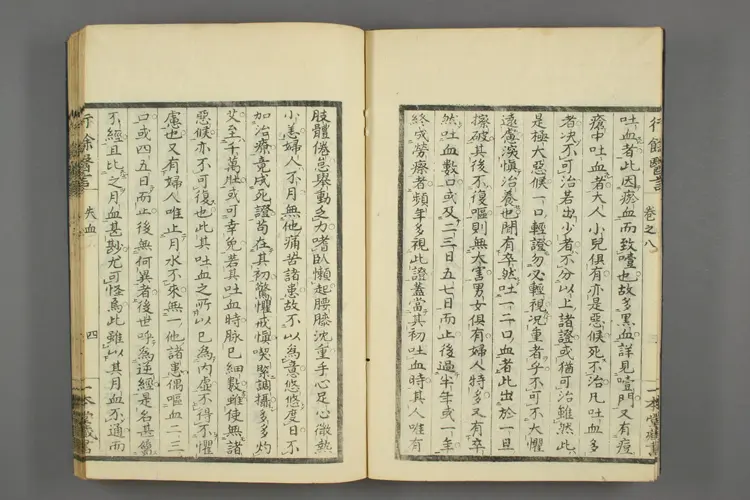 行餘醫言 卷之八
吐血者此因瘀血而致噎也故多黑血詳見噎門又有疫
瘡中吐血者大人小兒俱有亦是惡候死不治凡吐血多
者決不可治若出少者不分以上諸證或猶可治雖然此
是極大惡候一口輕證勿必輕視況重者乎不可不大懼
遠慮淡慎治養也間有卒然吐一二口血者此出於一旦
擦破其後不復嘔則無大害男女俱有婦人特多又有卒
然吐血數口或及二三日五七日而止後過半年或一年
終成勞瘵者頻年多視此證蓋當其初吐血時其人唯有
肢體倦怠舉動乏力嗜臥懶起腰膝沈重手心足心微熱
小恙婦人不月無他痛苦諸患故不以為意悠悠度日不
加治療竟成死證苟在其初驚懼戒慎喫緊調攝多多灼
艾至千萬壯或可幸免若其吐血時脉已細數雖使無諸
惡候亦不可復也此其吐血之所以已為內虛不得不懼
慮也又有婦人唯止月水不來無一他諸患偶嘔血二三
口或四五日而止後無何異者後世呼為逆經是名甚篇
不經且比之月血甚尠尤可怪焉此雖以其月血不通而
行餘醫言 失血 四 一本堂藏書